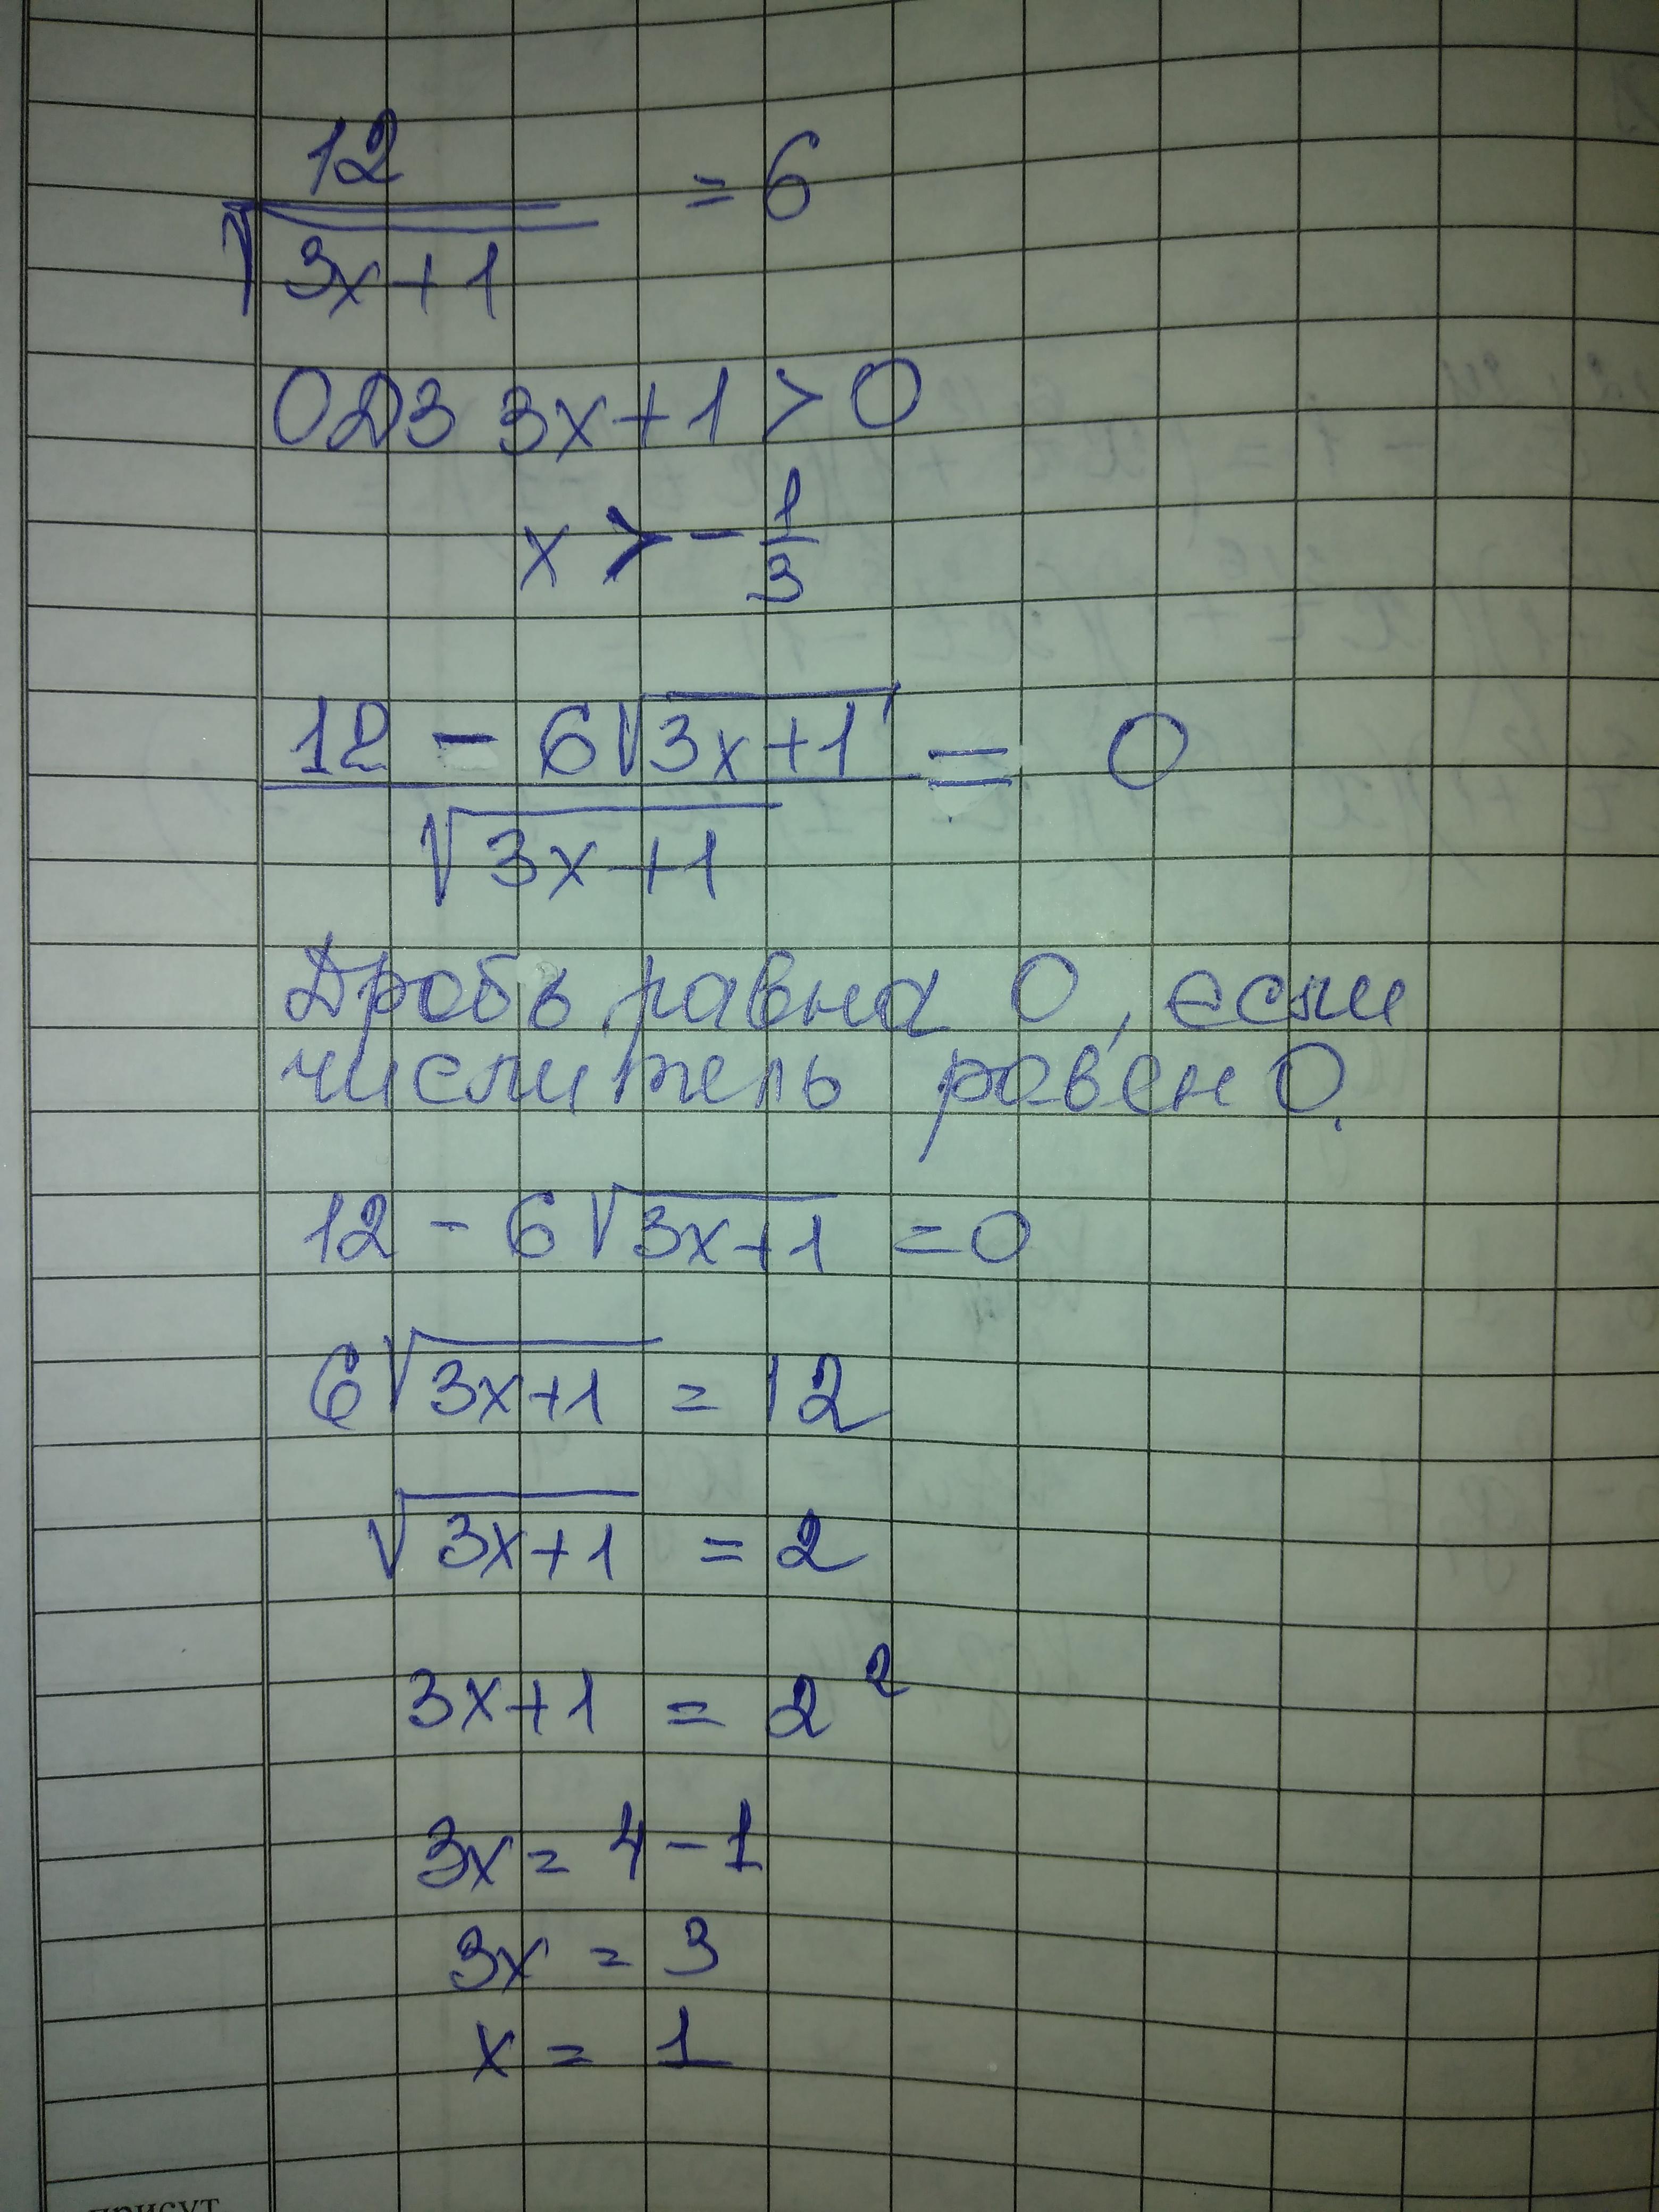 12/√(3x+1) = 6
ОДЗ 3x+1 > 0
x > -1/3
(12 - 6√(3x+1))/√(3x+1) = 0
Дробь равна 0, если
числитель равен 0.
12 - 6√(3x+1) = 0
6√(3x+1) = 12
√(3x+1) = 2
3x+1 = 2²
3x = 4-1
3x = 3
x = 1